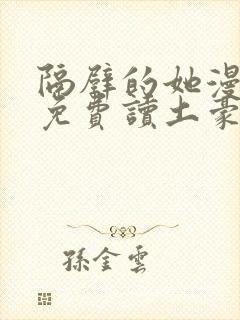 隔壁的她漫
免費讀土豪
孫金雲